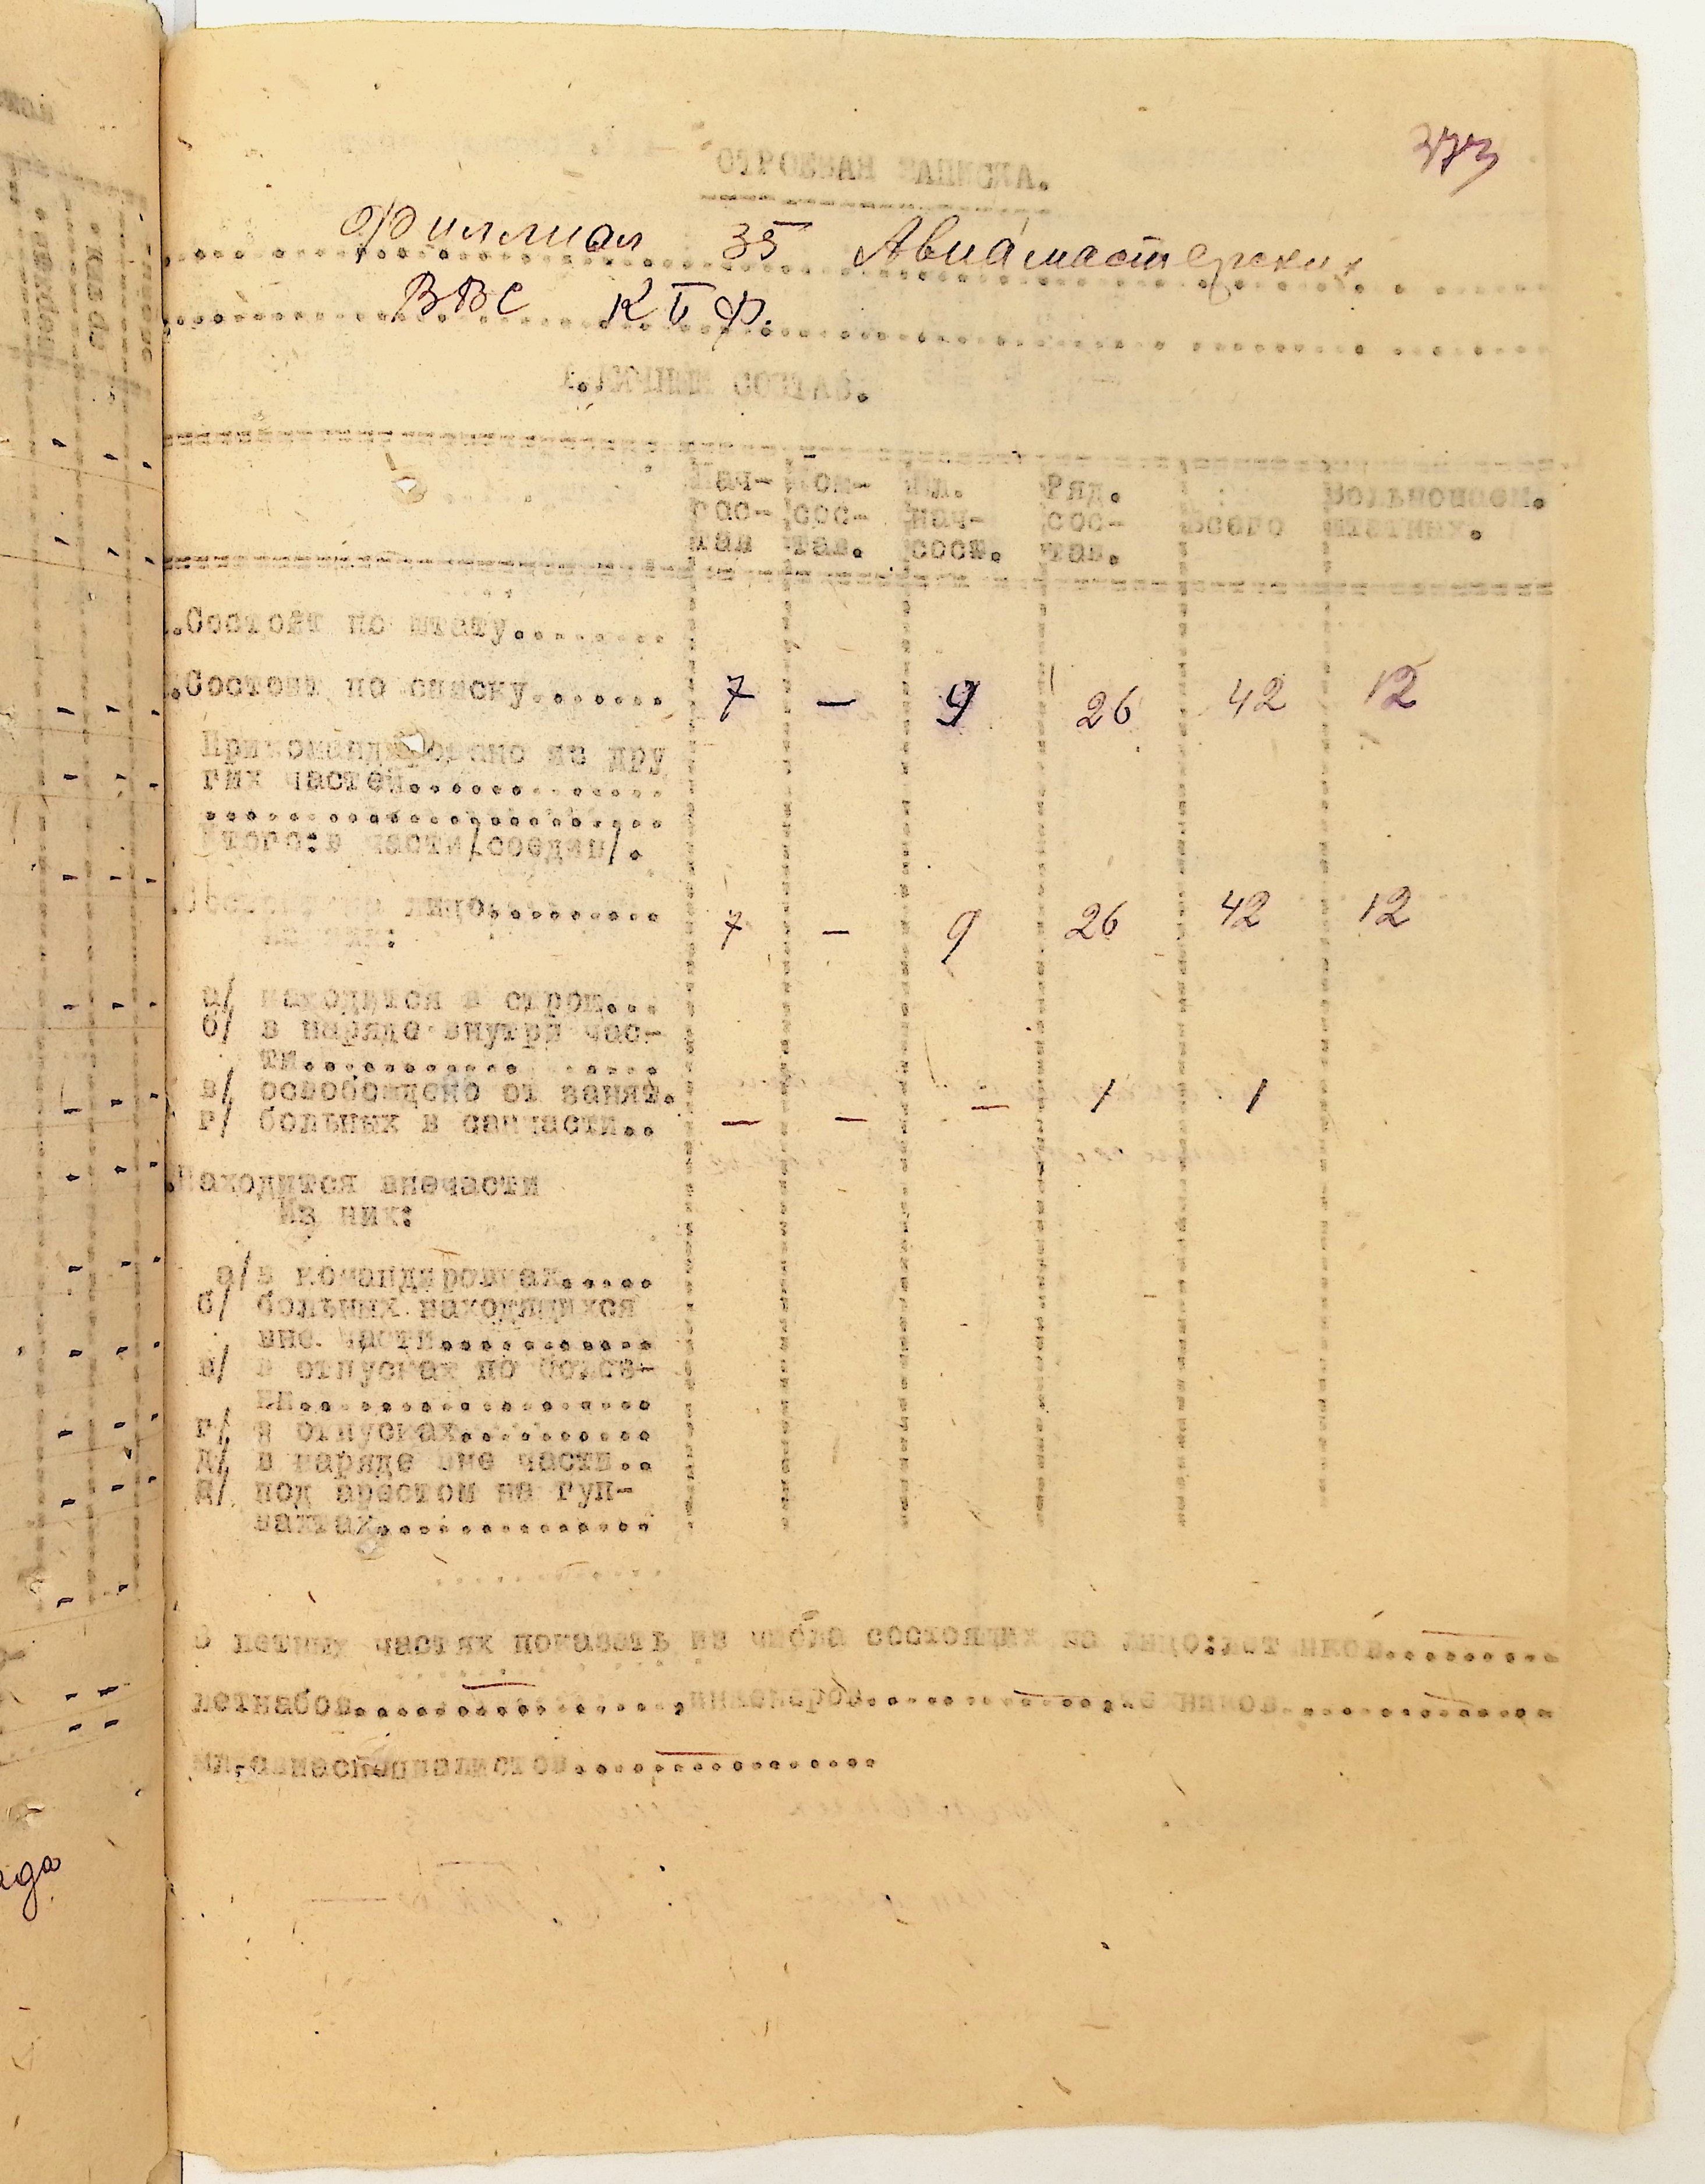 373
СТРОЕВАЯ ЗАПИСКА.
Филлиал 35 Авиамастерских
ВВС КБФ.
1.ЛИЧНЫЙ СОСТАВ.
Нач- Ком- Мл. Ряд. Вольнонаем.
сос- сос- нач- сос- Всего штатных.
тав тав. сост. тав.
.Состоит по штату.........
.Состоит по списку....... 7 — 9 26 42 12
Прикомандировано из дру
гих частей.............
......................
Итого:в части/соедин/.
налицо.......... 7 — 9 26 42 12
а/ находится в строю...
б/ в наряде внутри час-
ти...................
в/ освобождено от занят.
г/ больных в санчасти.. — — — 1 1
.Находится внечасти
Из них:
а/в командировках.....
б/ больных находящихся
вне части............
в/ в отпусках по болез-
ни....................
г/ в отпусках..........
д/ в наряде вне части..
под арестом на гуп-
вахтах...............
В летных частях показать из числа состоящих на лицо:летчиков..........
летнабов....................,инженеров..............,техников................
мл.авиаспециалистов.................
ада